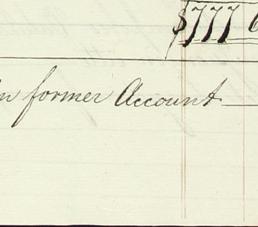 $777 6
n former Account